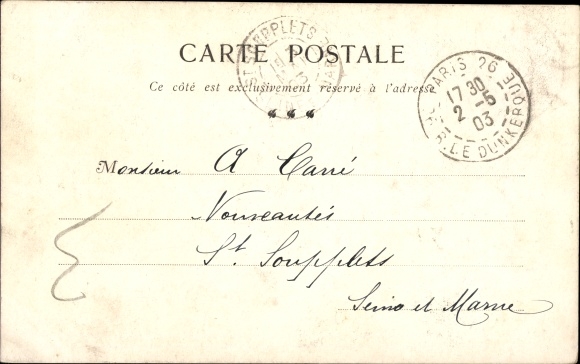 CARTE POSTALE
Ce côté est exclusivement réservé à l'adresse
PARIS 26
R. DE DUNKERQUE
17 30
2 - 5
03
Monsieur A Carré
Nouveautés
St. Soupplets
Seine et Marne